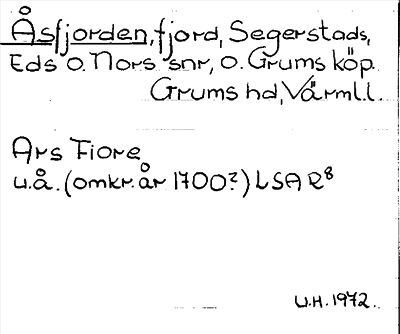 Åsfjorden, fjord, Segerstads,
Eds o. Nors snr, o. Grums köp.
Grums hd, Värml.l.
Ars Fiore
u.å. (omkr. år 1700?) LSA R8
U.H. 1972.